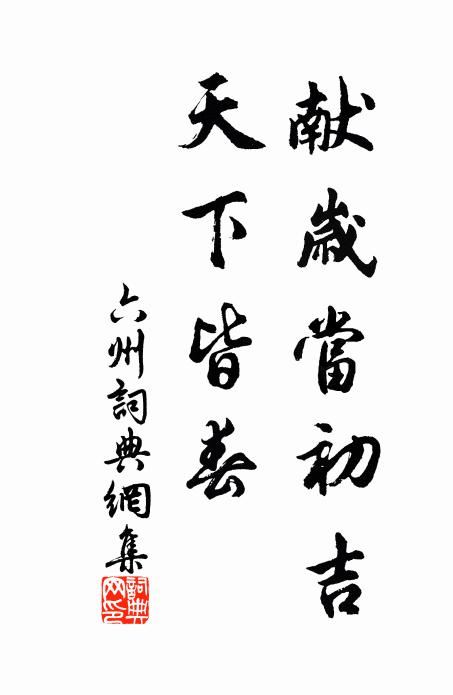 献歲當初吉
天下皆春
六州詞典網集
詞典網印